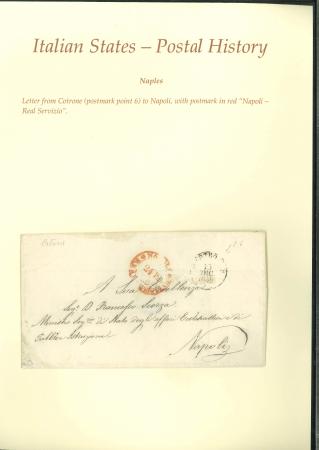 Italian States – Postal History
Naples
Letter from Cotrone (postmark point 6) to Napoli, with postmark in red "Napoli –
Real Servizio".
A Sua Eccellenza
Sigr. D. Francesco Scorza
Ministro Segr. di Stato degli affari Ecclesiastici e di
Pubblica Istruzione
Napoli